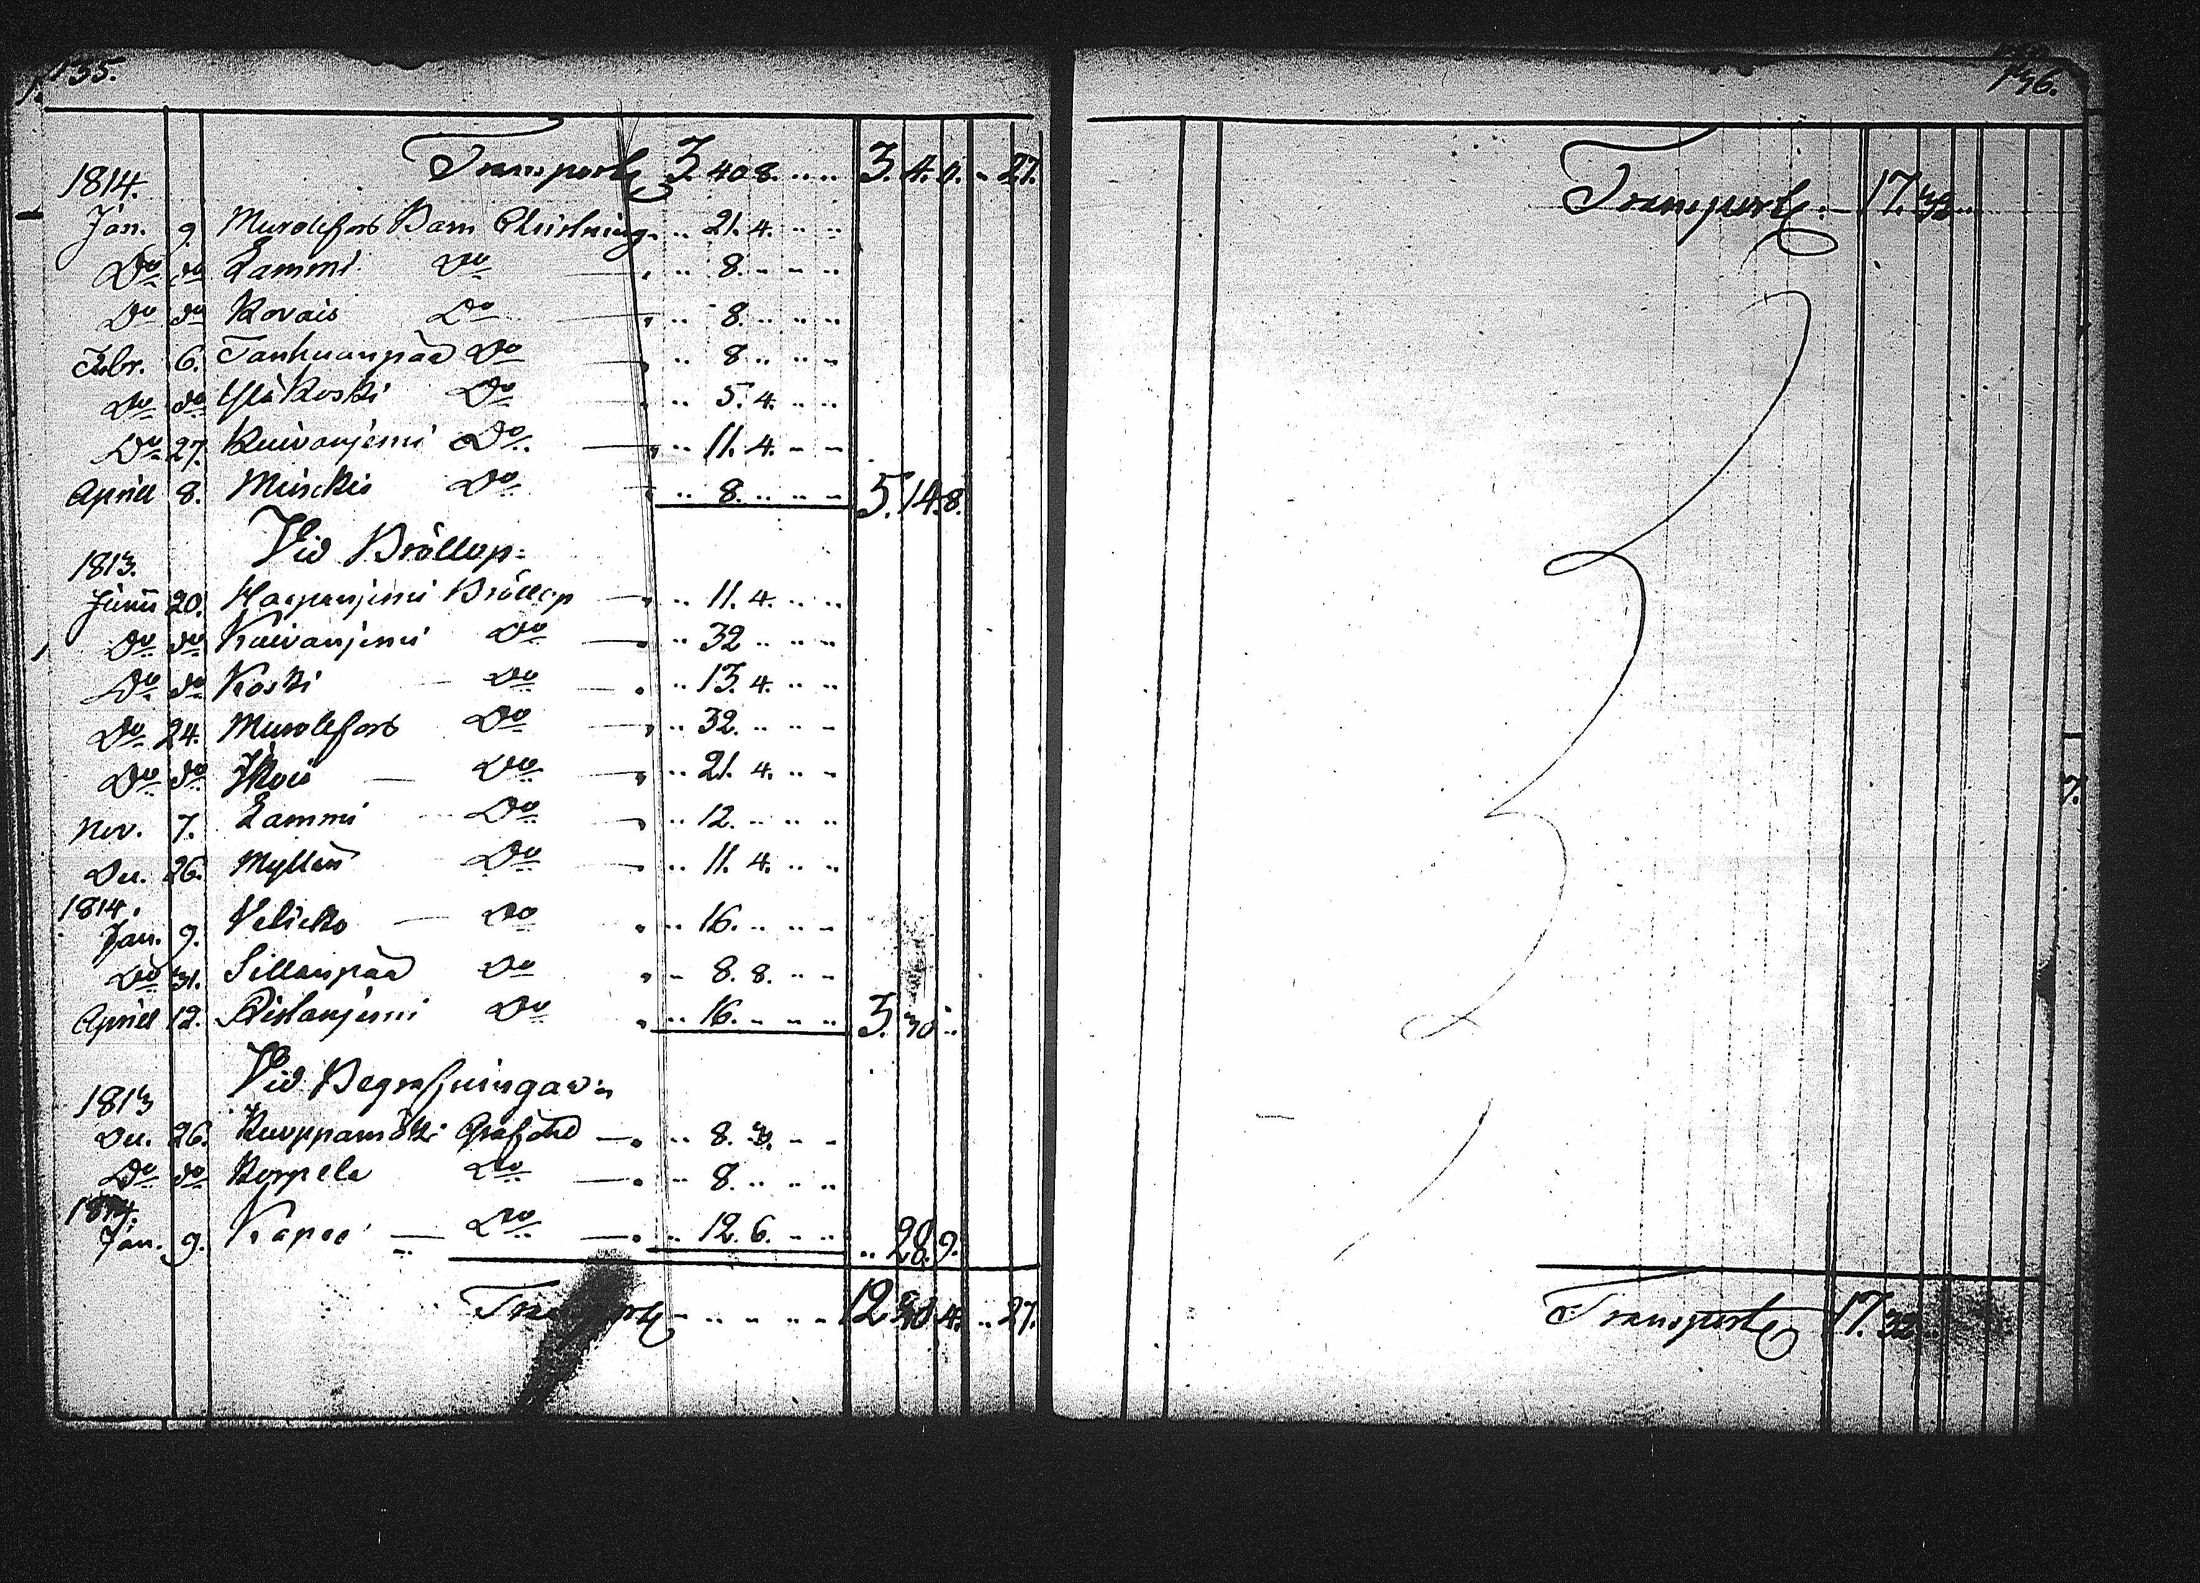 135.
Transport 3. 40 8. .. .. 3. 4. 0. .. 27.
1814.
Jan. 9. Murolefors Barn Christning .. .. 21. 4. .. ..
Do do Lammi Do .. .. 8. .. .. ..
Do do Kovais Do .. .. 8. .. .. ..
Febr. 6. Tanhuanpää Do .. .. 8. .. .. ..
Do do Ylä Koski Do .. .. 5. 4. .. ..
Do 27. Kuivanjemi Do .. .. 11. 4. .. ..
April 8. Do .. .. 8. .. .. .. 5. 14. 8.
Vid Bröllop:
1813.
Junii 20. Haapanjemi Bröllop .. .. 11. 4. .. ..
Do do Kuivanjemi Do .. .. 32 .. .. ..
Do do Koski Do .. .. 13. 4. .. ..
Do 24. Murolefors Do .. .. 32. .. .. ..
Do do Do .. .. 21. 4. .. ..
Nov. 7. Lammi Do .. .. 12. .. .. ..
Dec. 26. Do .. .. 11. 4. .. ..
1814.
Jan. 9. Do .. .. 16. .. .. ..
Do 31. Sillanpää Do .. .. 8. 8. .. ..
April 12. Ristanjemi Do .. .. 16. .. .. .. 3. 30 ..
Vid Begrafningar:
1813
Dec. 26. Kuoppamäki Graföhl .. .. 8. 3. .. ..
Do do Korpela Do .. .. 8. .. .. ..
1814.
Jan. 9. Do .. .. 12. 6. .. .. .. 28. 9.
Transport .. .. .. .. .. 12. 30 4. .. 27.
136.
Transport .. 17. 32
7.
Transport 17. 32